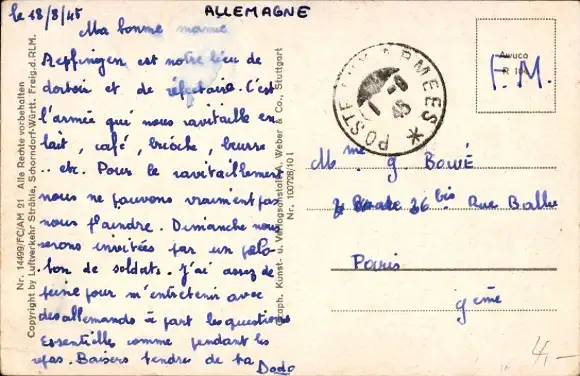 ALLEMAGNE
le 18/8/45
Ma bonne mamie
Aepfingen est notre lieu de
dortoir et de réfectoire. C'est
l'armée qui nous ravitaille en
lait, café, brioche, beurre
.. etc. Pour le ravitaillement
nous ne pouvons vraiment pas
nous plaindre. Dimanche nous
serons invitées par un pelo-
ton de soldats. J'ai assez de
peine pour m'entretenir avec
des allemands à part les questions
Essentielles comme pendant les
repas. Baisers tendres de ta
Dodo
Nr. 14499/FC/AM 21 Alle Rechte vorbehalten
Copyright by Luftverkehr Strähle, Schorndorf-Württ. Freig. d. RLM.
Graph. Kunst- u. Verlagsanstalt Weber & Co., Stuttgart
Nr. 100728/10 I
POSTE AUX ARMEES *
45
Awuco
F.M.
Mme g. Bowé
26 bis Rue Ballu
Paris
9ème
4,-